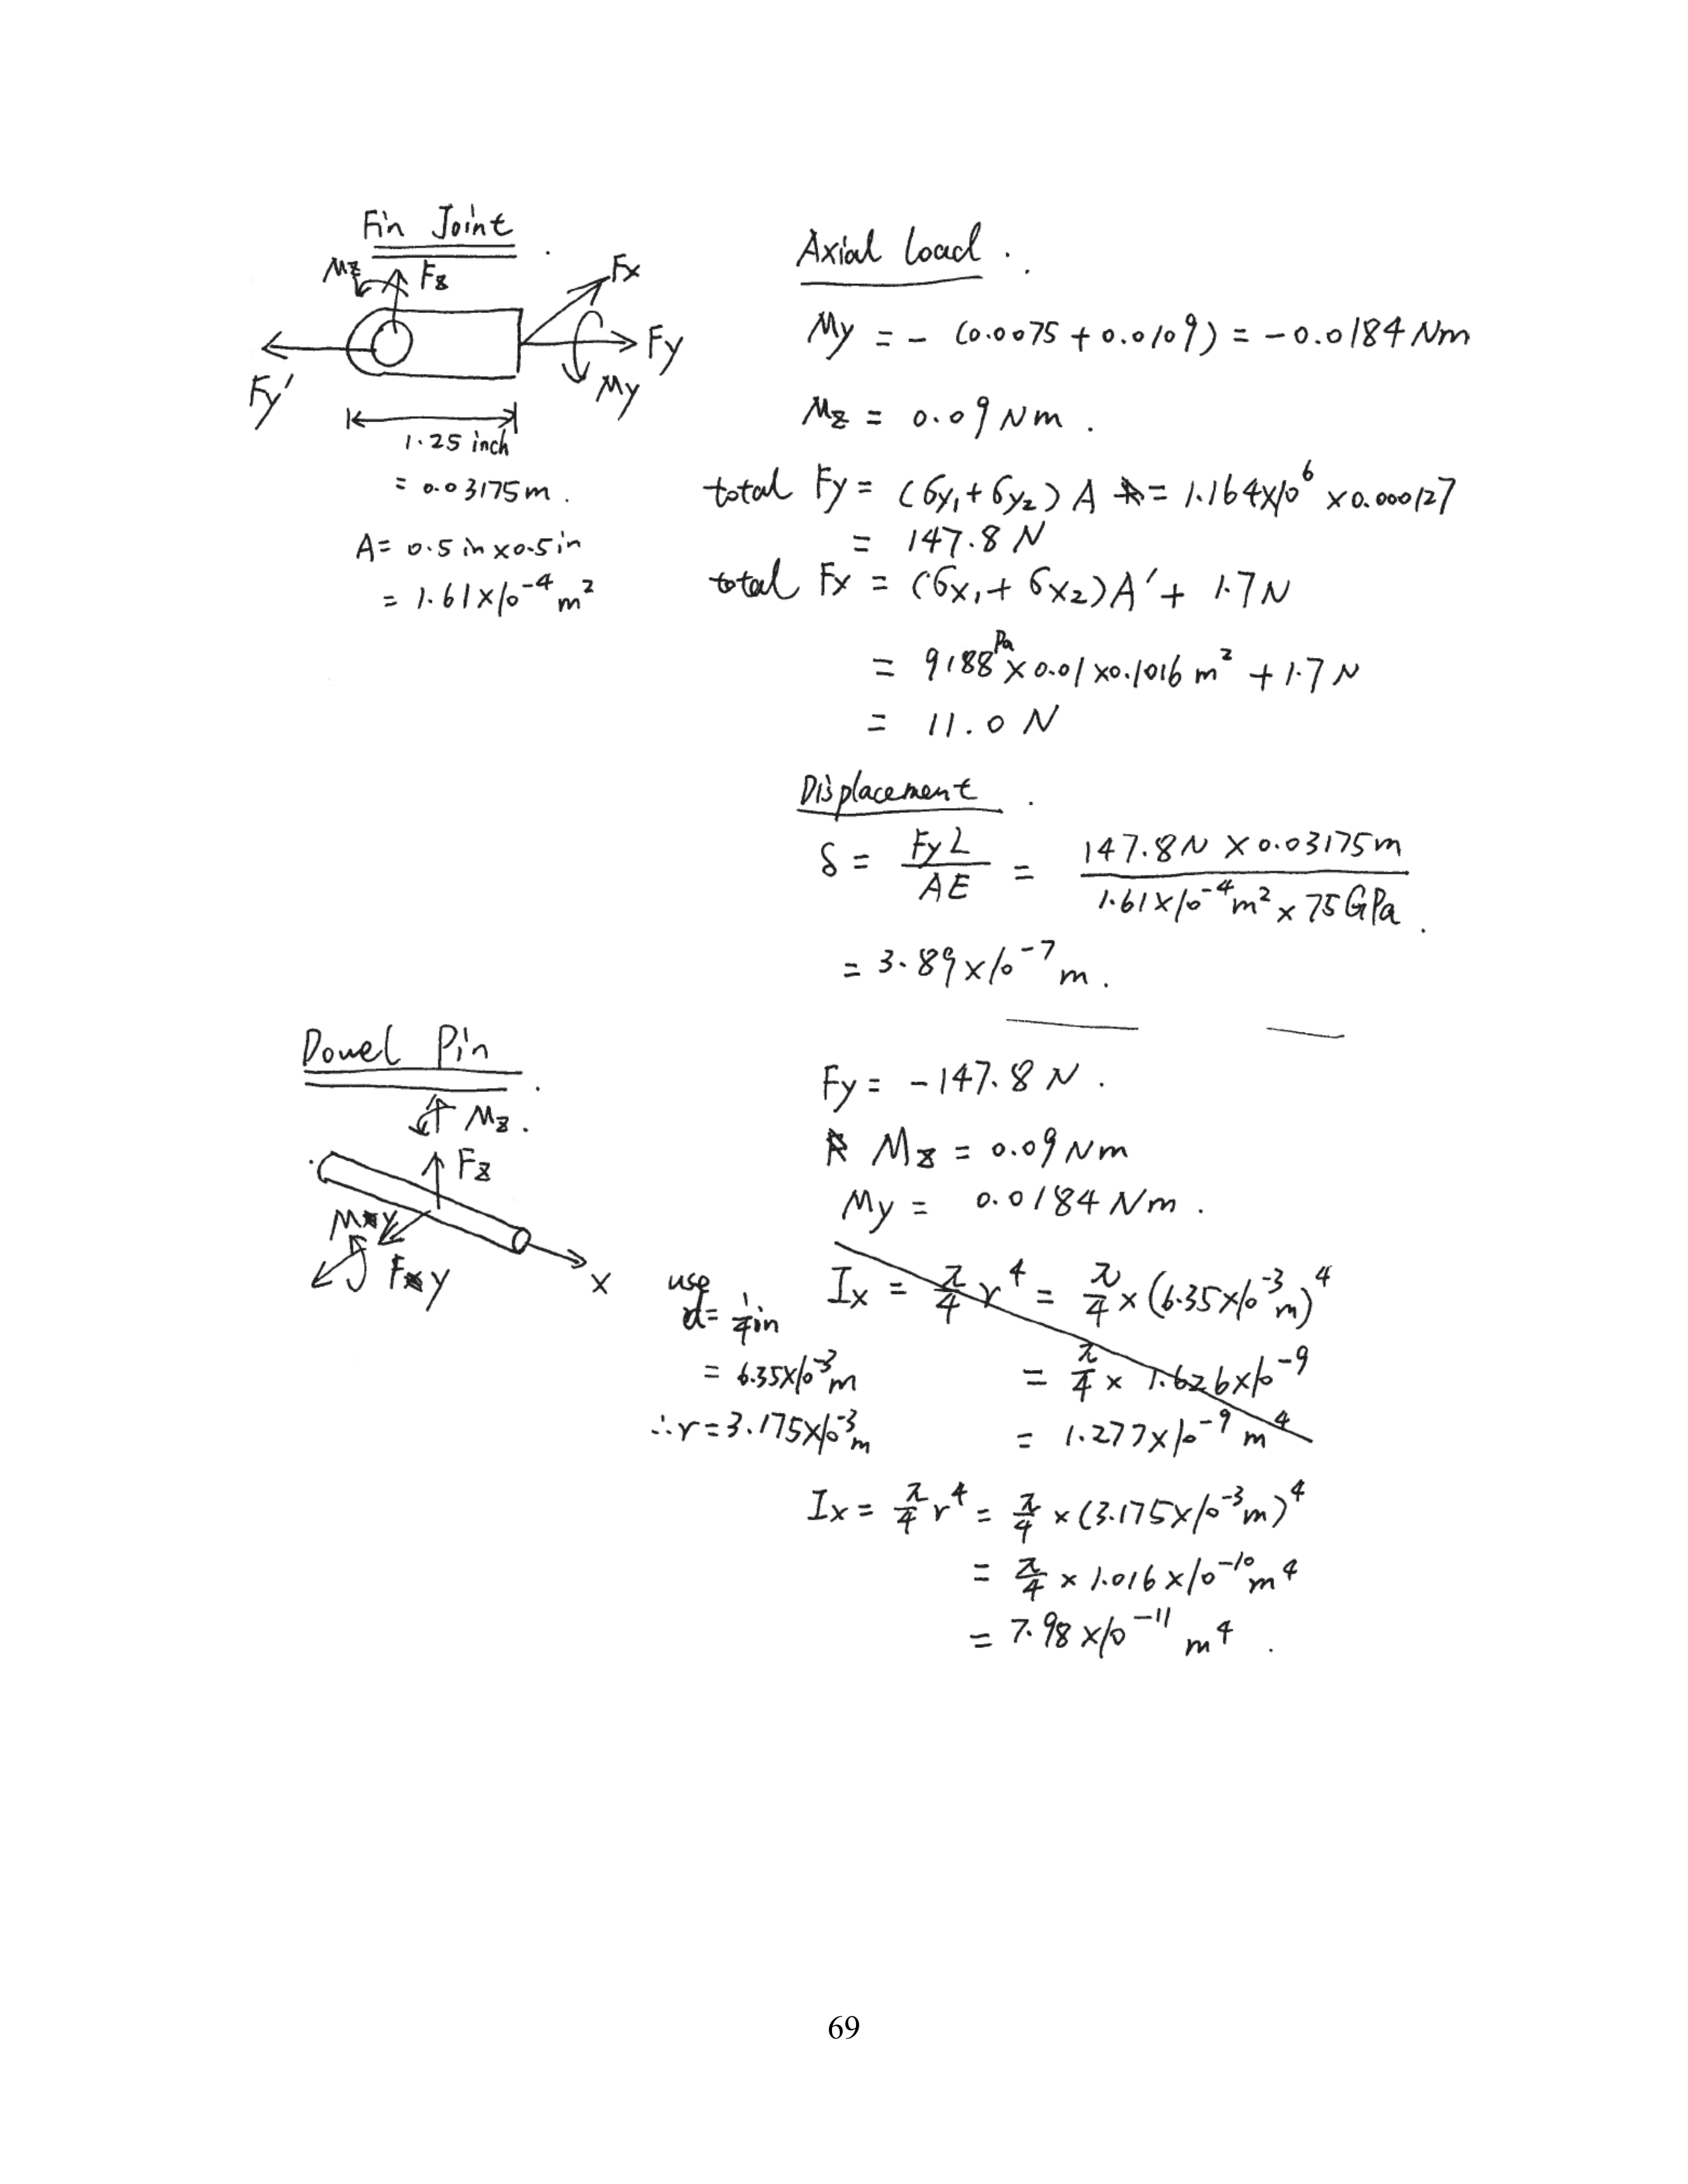 Fin Joint
Mz Fz Fx
Fy' Fy
My
1.25 inch
= 0.03175m.
A = 0.5 in x 0.5 in
= 1.61 x 10^-4 m^2
Axial Load.
My = - (0.0075 + 0.0109) = -0.0184 Nm
Mz = 0.09 Nm.
total Fy = (σy1 + σy2) A = 1.164x10^6 x 0.000127
= 147.8 N
total Fx = (σx1 + σx2) A' + 1.7 N
= 9188 Pa x 0.01 x 0.1016 m^2 + 1.7 N
= 11.0 N
Displacement.
δ = FyL / AE = 147.8 N x 0.03175m / 1.61 x 10^-4 m^2 x 75 GPa.
= 3.89 x 10^-7 m.
Dowel Pin.
Mz.
Fz
My
Fy
x
Fy = -147.8 N.
Mz = 0.09 Nm
My = 0.0184 Nm.
use
d = 1/4 in
= 6.35x10^-3 m
∴ r = 3.175x10^-3 m
Ix = π/4 r^4 = π/4 x (6.35x10^-3 m)^4
= π/4 x 1.626x10^-9
= 1.277x10^-9 m^4
Ix = π/4 r^4 = π/4 x (3.175x10^-3 m)^4
= π/4 x 1.016 x 10^-10 m^4
= 7.98 x 10^-11 m^4.
69